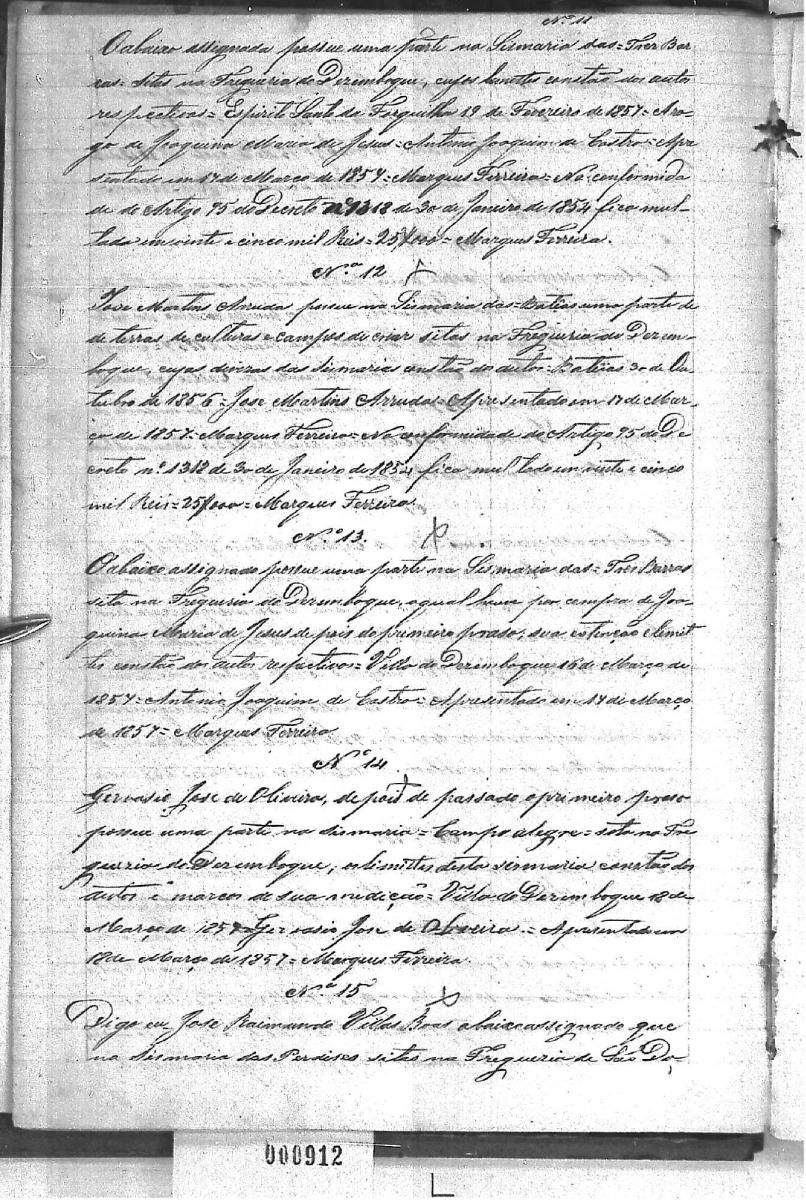 Nº 11
O abaixo assignada possue uma parte na Sismaria das = Tres Bar
ras = sitas na Freguezia do Dezemboque, cujos limites constão dos autos
respectivos = Espirito Santo da Forquilha 19 de Fevereiro de 1857 = Aro-
go de Joaquina Maria de Jesus = Antonio Joaquim de Castro = Apre
sentado em 17 de Março de 1857 = Marques Ferreira = Na conformida
de do Artigo 95 do Decreto nº 1318 de 30 de Janeiro de 1854 fica mul-
tado em vinte e cinco mil Reis = 25$000 = Marques Ferreira.
Nº 12
Jose Martins Arruda possue na Sismaria das = Batêas uma parte de
de terras de culturas e campos de criar sitas na Freguezia do Dezem-
boque, cujas das Sismarias constão do autos = Batêas 30 de Ou-
tubro de 1856 = Jose Martins Arruda = Apresentado em 17 de Mar-
ço de 1857 = Marques Ferreira = Na conformidade do Artigo 95 do De
creto nº 1318 de 30 de Janeiro de 1854 fica multado em vinte e cinco
mil Reis = 25$000 = Marques Ferreira
Nº 13.
O abaixo assignado possue uma parte na Sismaria das = Tres Barras
sita na Freguezia do Dezemboque, a qual houve por compra de Joa-
quina Maria de Jesus depois do primeiro praso; sua extenção e limi-
tes constão dos autos respectivos = Villa do Dezemboque 16 de Março de
1857 = Antonio Joaquim de Castro = Apresentado em 17 de Março
de 1857 = Marques Ferreira
Nº 14
Gervasio Jose de Oliveira, depois de passado o primeiro praso
possue uma parte na sismaria = Campo alegre = sita na Fre
guezia do Dezemboque, os limittes desta sismaria constão dos
autos e marcos de sua medição = Villa do Dezemboque 18 de
Março de 1857 = Gervasio Jose de Oliveira = Apresentado em
18 de Março de 1857 = Marques Ferreira
Nº 15
Digo eu Jose Raimundo Villas Boas abaixo assignado que
na Sismaria das Perdises sitas na Freguezia de São Do,
000912